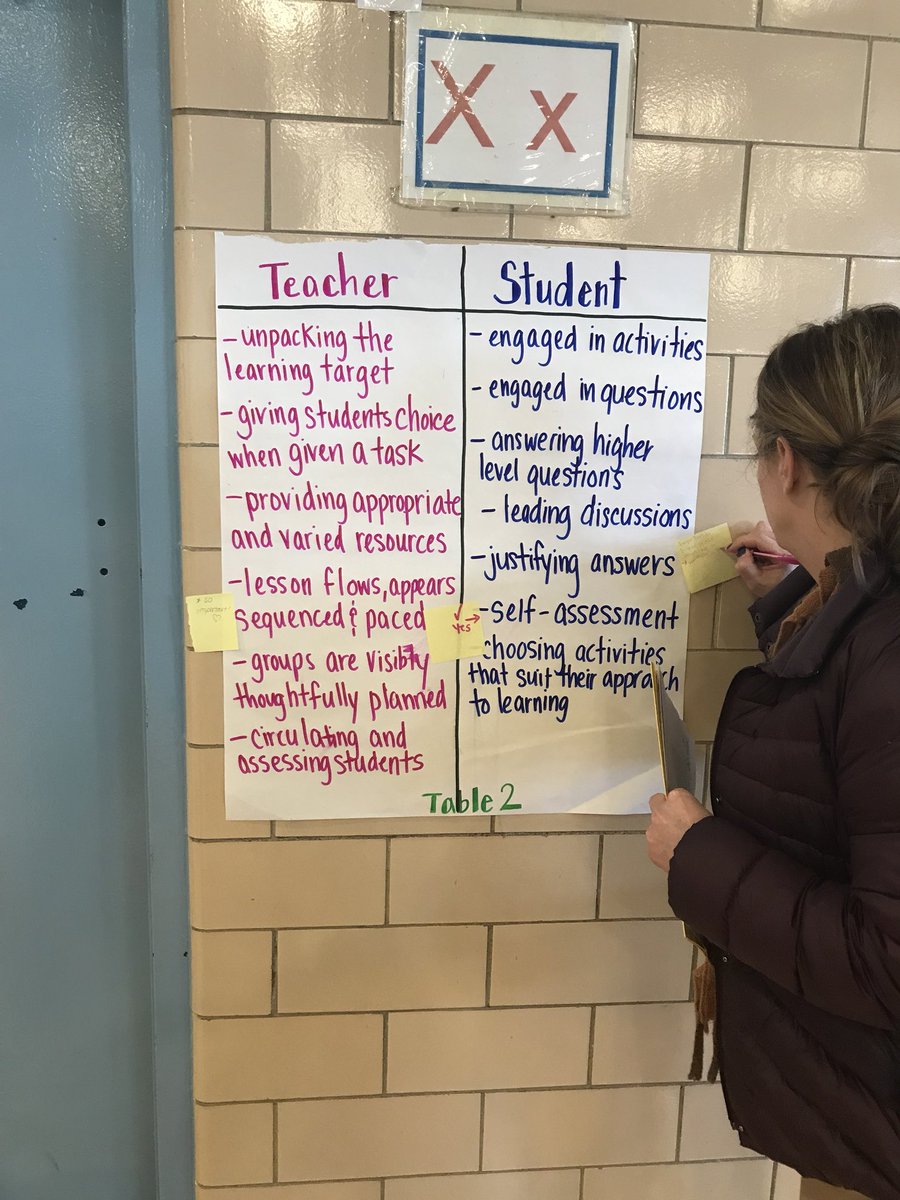 X x
Teacher
- unpacking the
learning target
- giving students choice
when given a task
- providing appropriate
and varied resources
- lesson flows, appears
sequenced & paced
- groups are visibly
thoughtfully planned
- circulating and
assessing students
Student
- engaged in activities
- engaged in questions
- answering higher
level questions
- leading discussions
- justifying answers
- self-assessment
choosing activities
that suit their approach
to learning
Table 2
* so
important!
yes